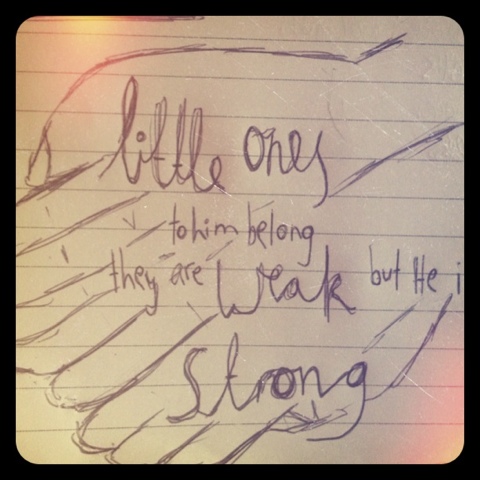 little ones
to him belong
they are weak but He i
strong